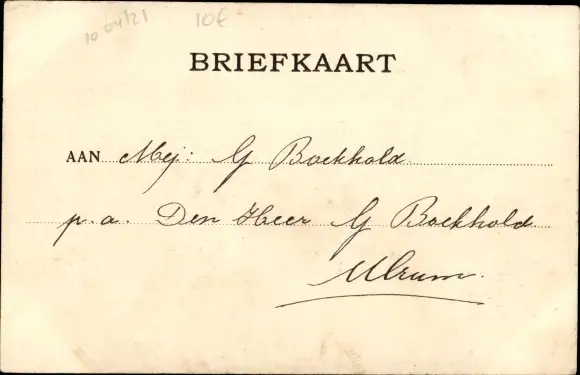 10 04/21 10€
BRIEFKAART
AAN Mej: G Boekhold
p.a. Den Heer G Boekhold
Ulrum.